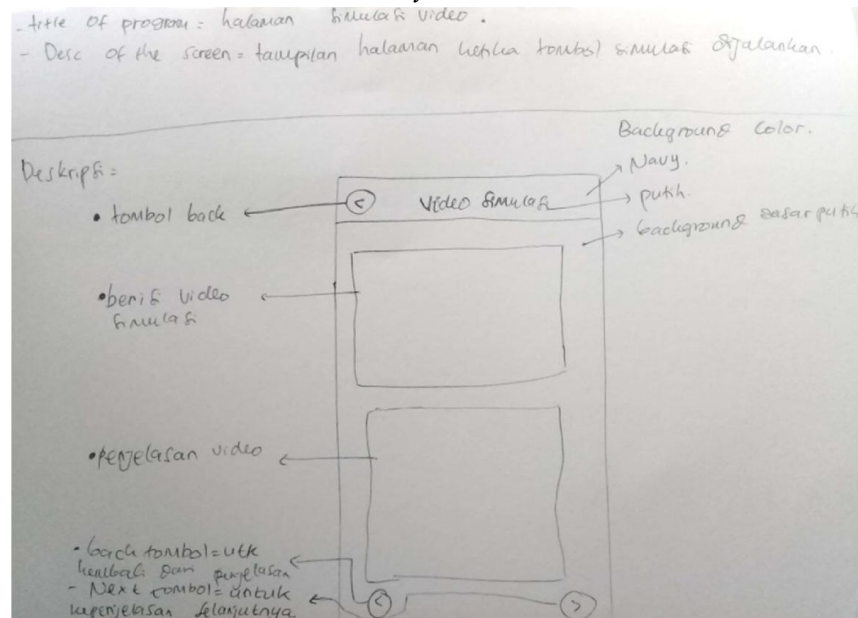 - title of program = halaman simulasi video.
- Desc of the screen = tampilan halaman ketika tombol simulasi dijalankan.
Background Color.
Navy.
putih.
background dasar putih
Deskripsi =
<
Video Simulasi
• tombol back
• berisi video
simulasi
• penjelasan video
- back tombol = utk
kembali dari penjelasan
- Next tombol = untuk
kepenjelasan selanjutnya
<
>